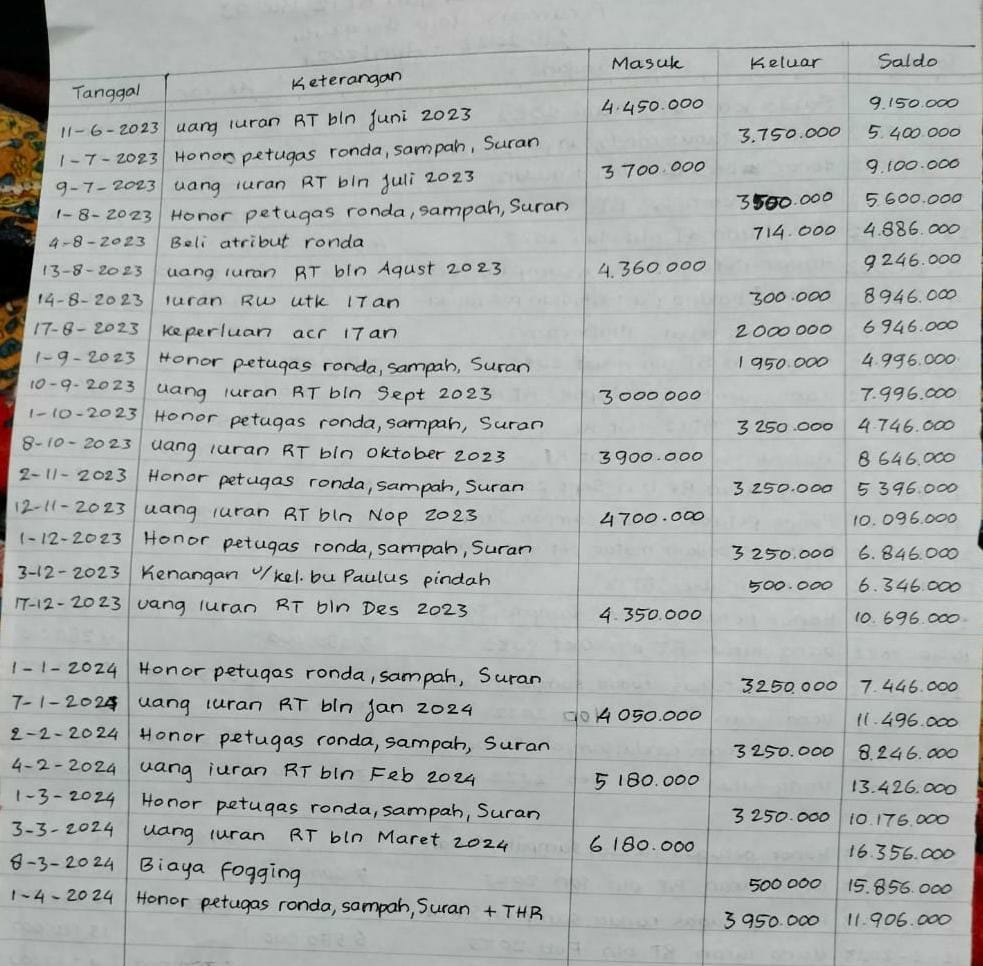 Tanggal Keterangan Masuk Keluar Saldo
11-6-2023 uang iuran RT bln Juni 2023 4.450.000 9.150.000
1-7-2023 Honor petugas ronda, sampah, Suran 3.750.000 5.400.000
9-7-2023 uang iuran RT bln Juli 2023 3 700.000 9.100.000
1-8-2023 Honor petugas ronda, sampah, Suran 3500.000 5.600.000
4-8-2023 Beli atribut ronda 714.000 4.886.000
13-8-2023 uang iuran RT bln Agust 2023 4.360.000 9246.000
14-8-2023 iuran RW utk 17an 300.000 8946.000
17-8-2023 keperluan acr 17an 2000 000 6946.000
1-9-2023 Honor petugas ronda, sampah, Suran 1950.000 4.996.000
10-9-2023 uang iuran RT bln Sept 2023 3000 000 7.996.000
1-10-2023 Honor petugas ronda, sampah, Suran 3250.000 4.746.000
8-10-2023 uang iuran RT bln Oktober 2023 3900.000 8646.000
2-11-2023 Honor petugas ronda, sampah, Suran 3250.000 5396.000
12-11-2023 uang iuran RT bln Nop 2023 4700.000 10.096.000
1-12-2023 Honor petugas ronda, sampah, Suran 3250.000 6.846.000
3-12-2023 Kenangan u/kel. bu Paulus pindah 500.000 6.346.000
17-12-2023 uang iuran RT bln Des 2023 4.350.000 10.696.000
1-1-2024 Honor petugas ronda, sampah, Suran 3250.000 7.446.000
7-1-2024 uang iuran RT bln Jan 2024 4050.000 11.496.000
2-2-2024 Honor petugas ronda, sampah, Suran 3250.000 8.246.000
4-2-2024 uang iuran RT bln Feb 2024 5 180.000 13.426.000
1-3-2024 Honor petugas ronda, sampah, Suran 3250.000 10.176.000
3-3-2024 uang iuran RT bln Maret 2024 6 180.000 16.356.000
8-3-2024 Biaya Fogging 500 000 15.856.000
1-4-2024 Honor petugas ronda, sampah, Suran + THR 3950.000 11.906.000